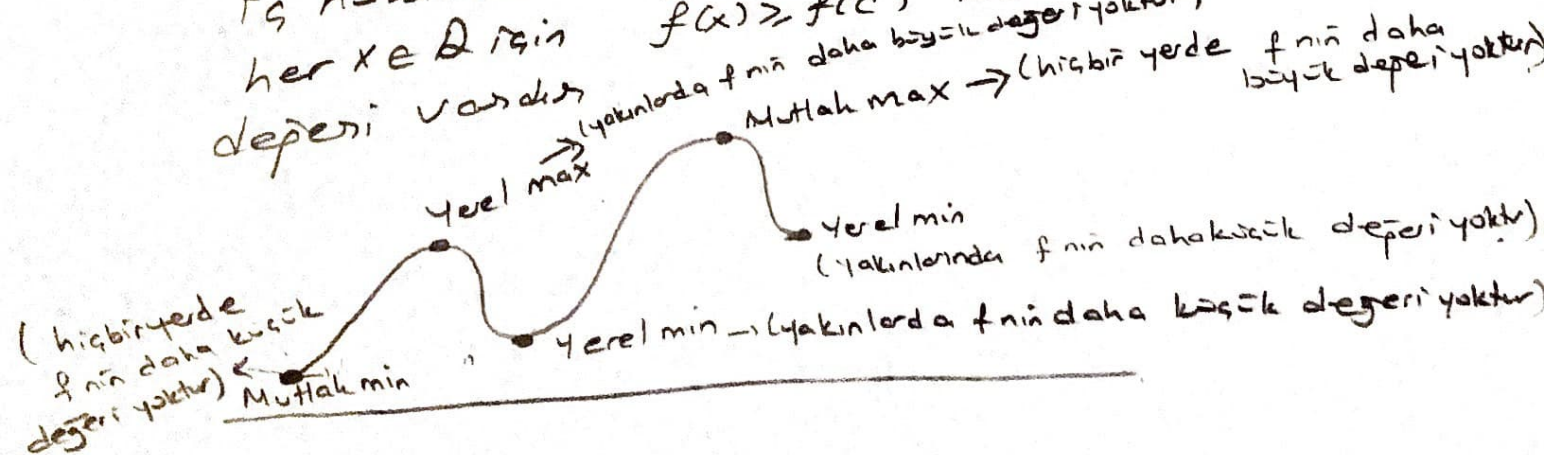 her x ∈ D için f(x) ≥ f(c
değeri vardır
Yerel max → (yakınlarda f nin daha büyük değeri yoktur)
Mutlak max → (hiçbir yerde f nin daha
büyük değeri yoktur)
Yerel min
(Yakınlarında f nin daha küçük değeri yoktur)
Yerel min → (yakınlarda f nin daha küçük değeri yoktur)
(hiçbir yerde
f nin daha küçük
değeri yoktur) ← Mutlak min